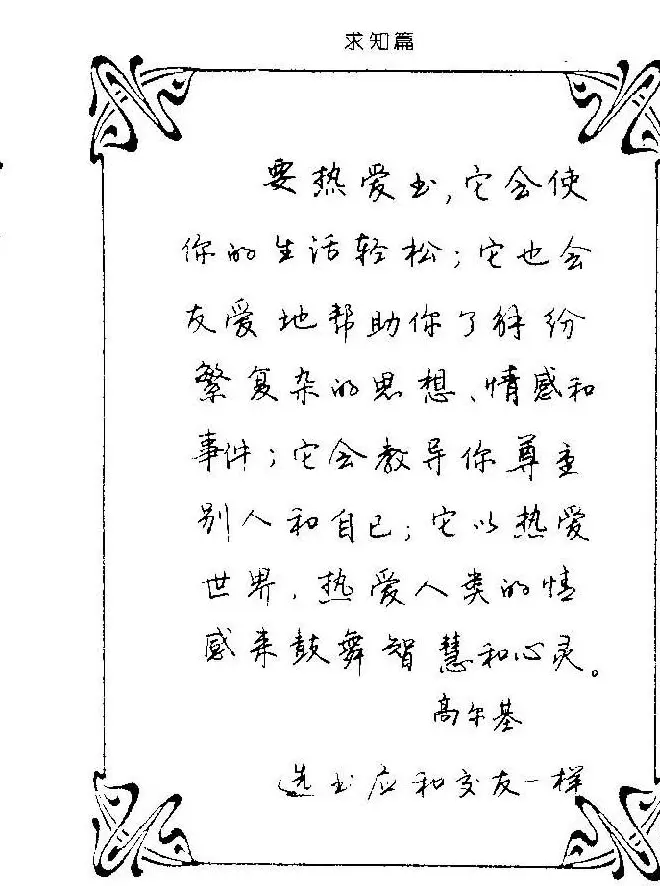 求知篇
要热爱书,它会使
你的生活轻松;它也会
友爱地帮助你了解纷
繁复杂的思想、情感和
事件;它会教导你尊重
别人和自己;它以热爱
世界、热爱人类的情
感来鼓舞智慧和心灵。
高尔基
选书应和交友一样